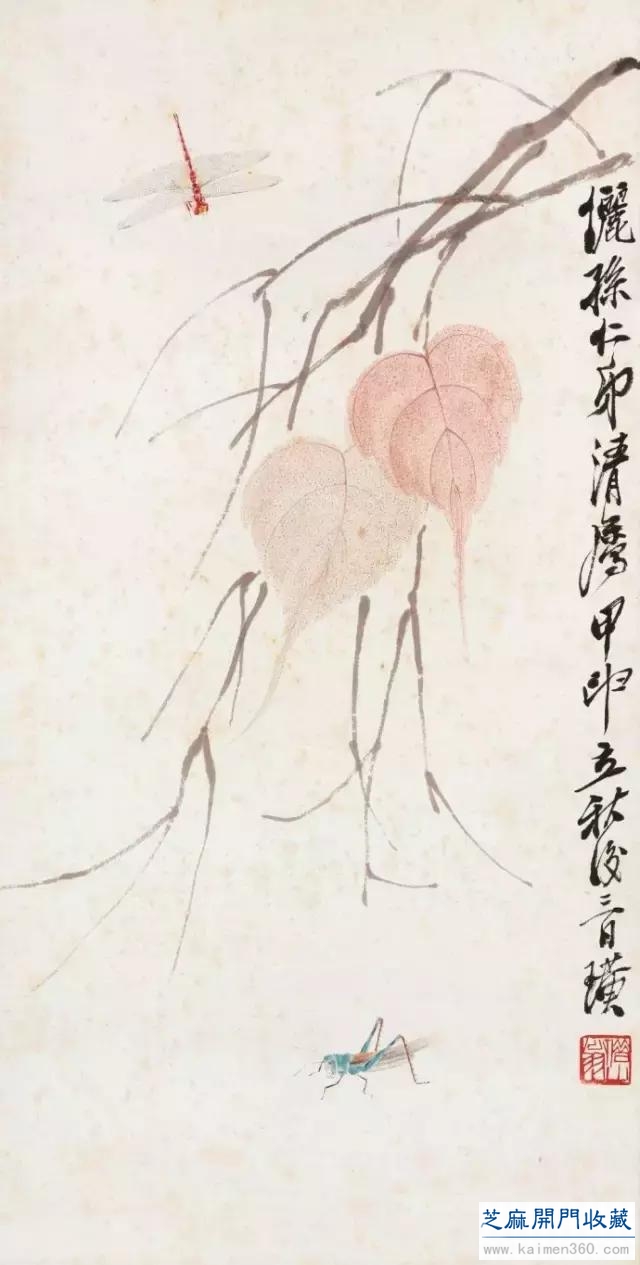 儷孫仁弟清屬甲申立秋後三日璜
芝麻開門收藏
www.kaimen360.com